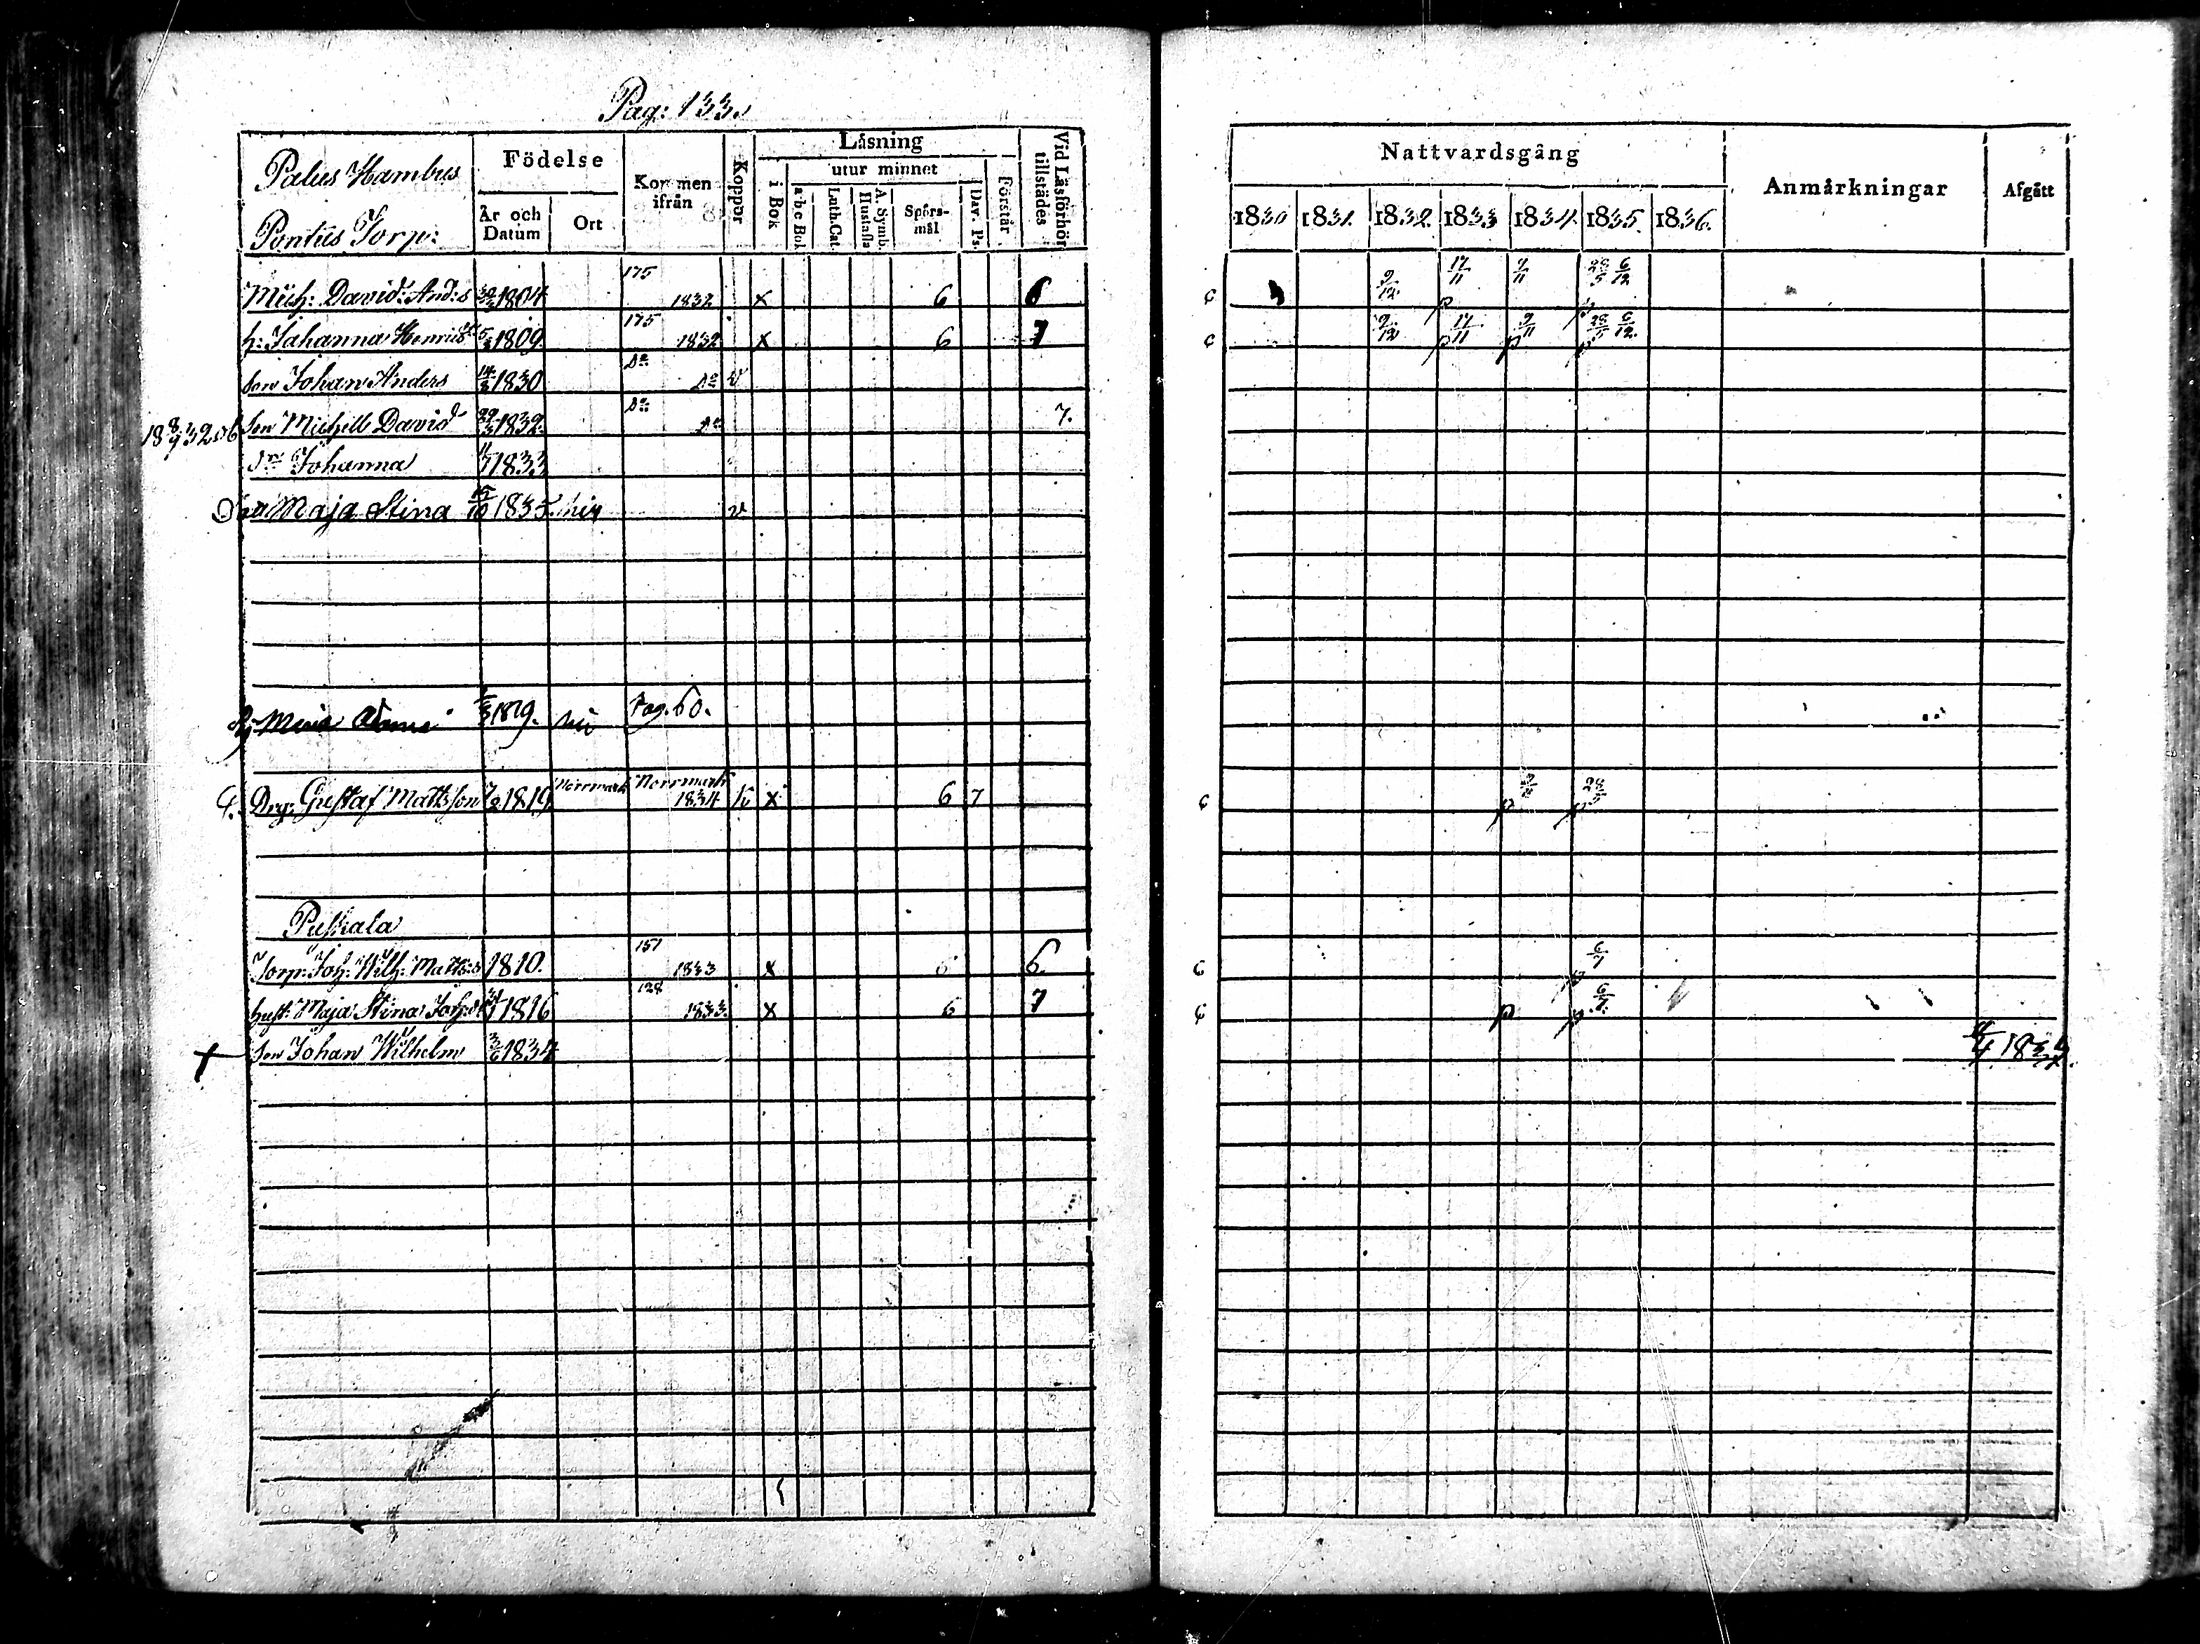 Pag: 133.
Palus Hambus
Pontus Torp:
Födelse
År och Datum
Ort
Kommen ifrån
Koppor
Läsning
utur minnet
i Bok
a b c Bok
Luth. Cat.
A. Symb. Hustafla
Spörsmål
Dav. Ps.
Förstår
Vid Läsförhör tillstädes
Nattvardsgång
1830 1831. 1832. 1833 1834 1835. 1836.
Anmärkningar
Afgått
Mich: David And:s 1804 175 1832 x 6 6 9/12 17/11 9/11 6/12
h: Johanna Henriksdr 1809 175 1832 x 6 7 9/12 17/11 p 9/11 p 6/12 p
Son Johan Anders 14/8 1830 Do Do v
Son Michell David 29/3 1832 Do Do 7.
dr Johanna 1833
Maja Stina 1835. v
1819. Pag. 60.
Drg: Gustaf Matts son 1819 Norrmark Norrmark 1834 v x 6 7 p p
Puskala
Torp: Joh: Wilh: Matts:s 1810. 151 1833 x 6 6 6/7
hust: Maja Stina Joh:dr 1816 128 1833 x 6 7 p p 6/7
† Son Johan Wilhelm 3/6 1834